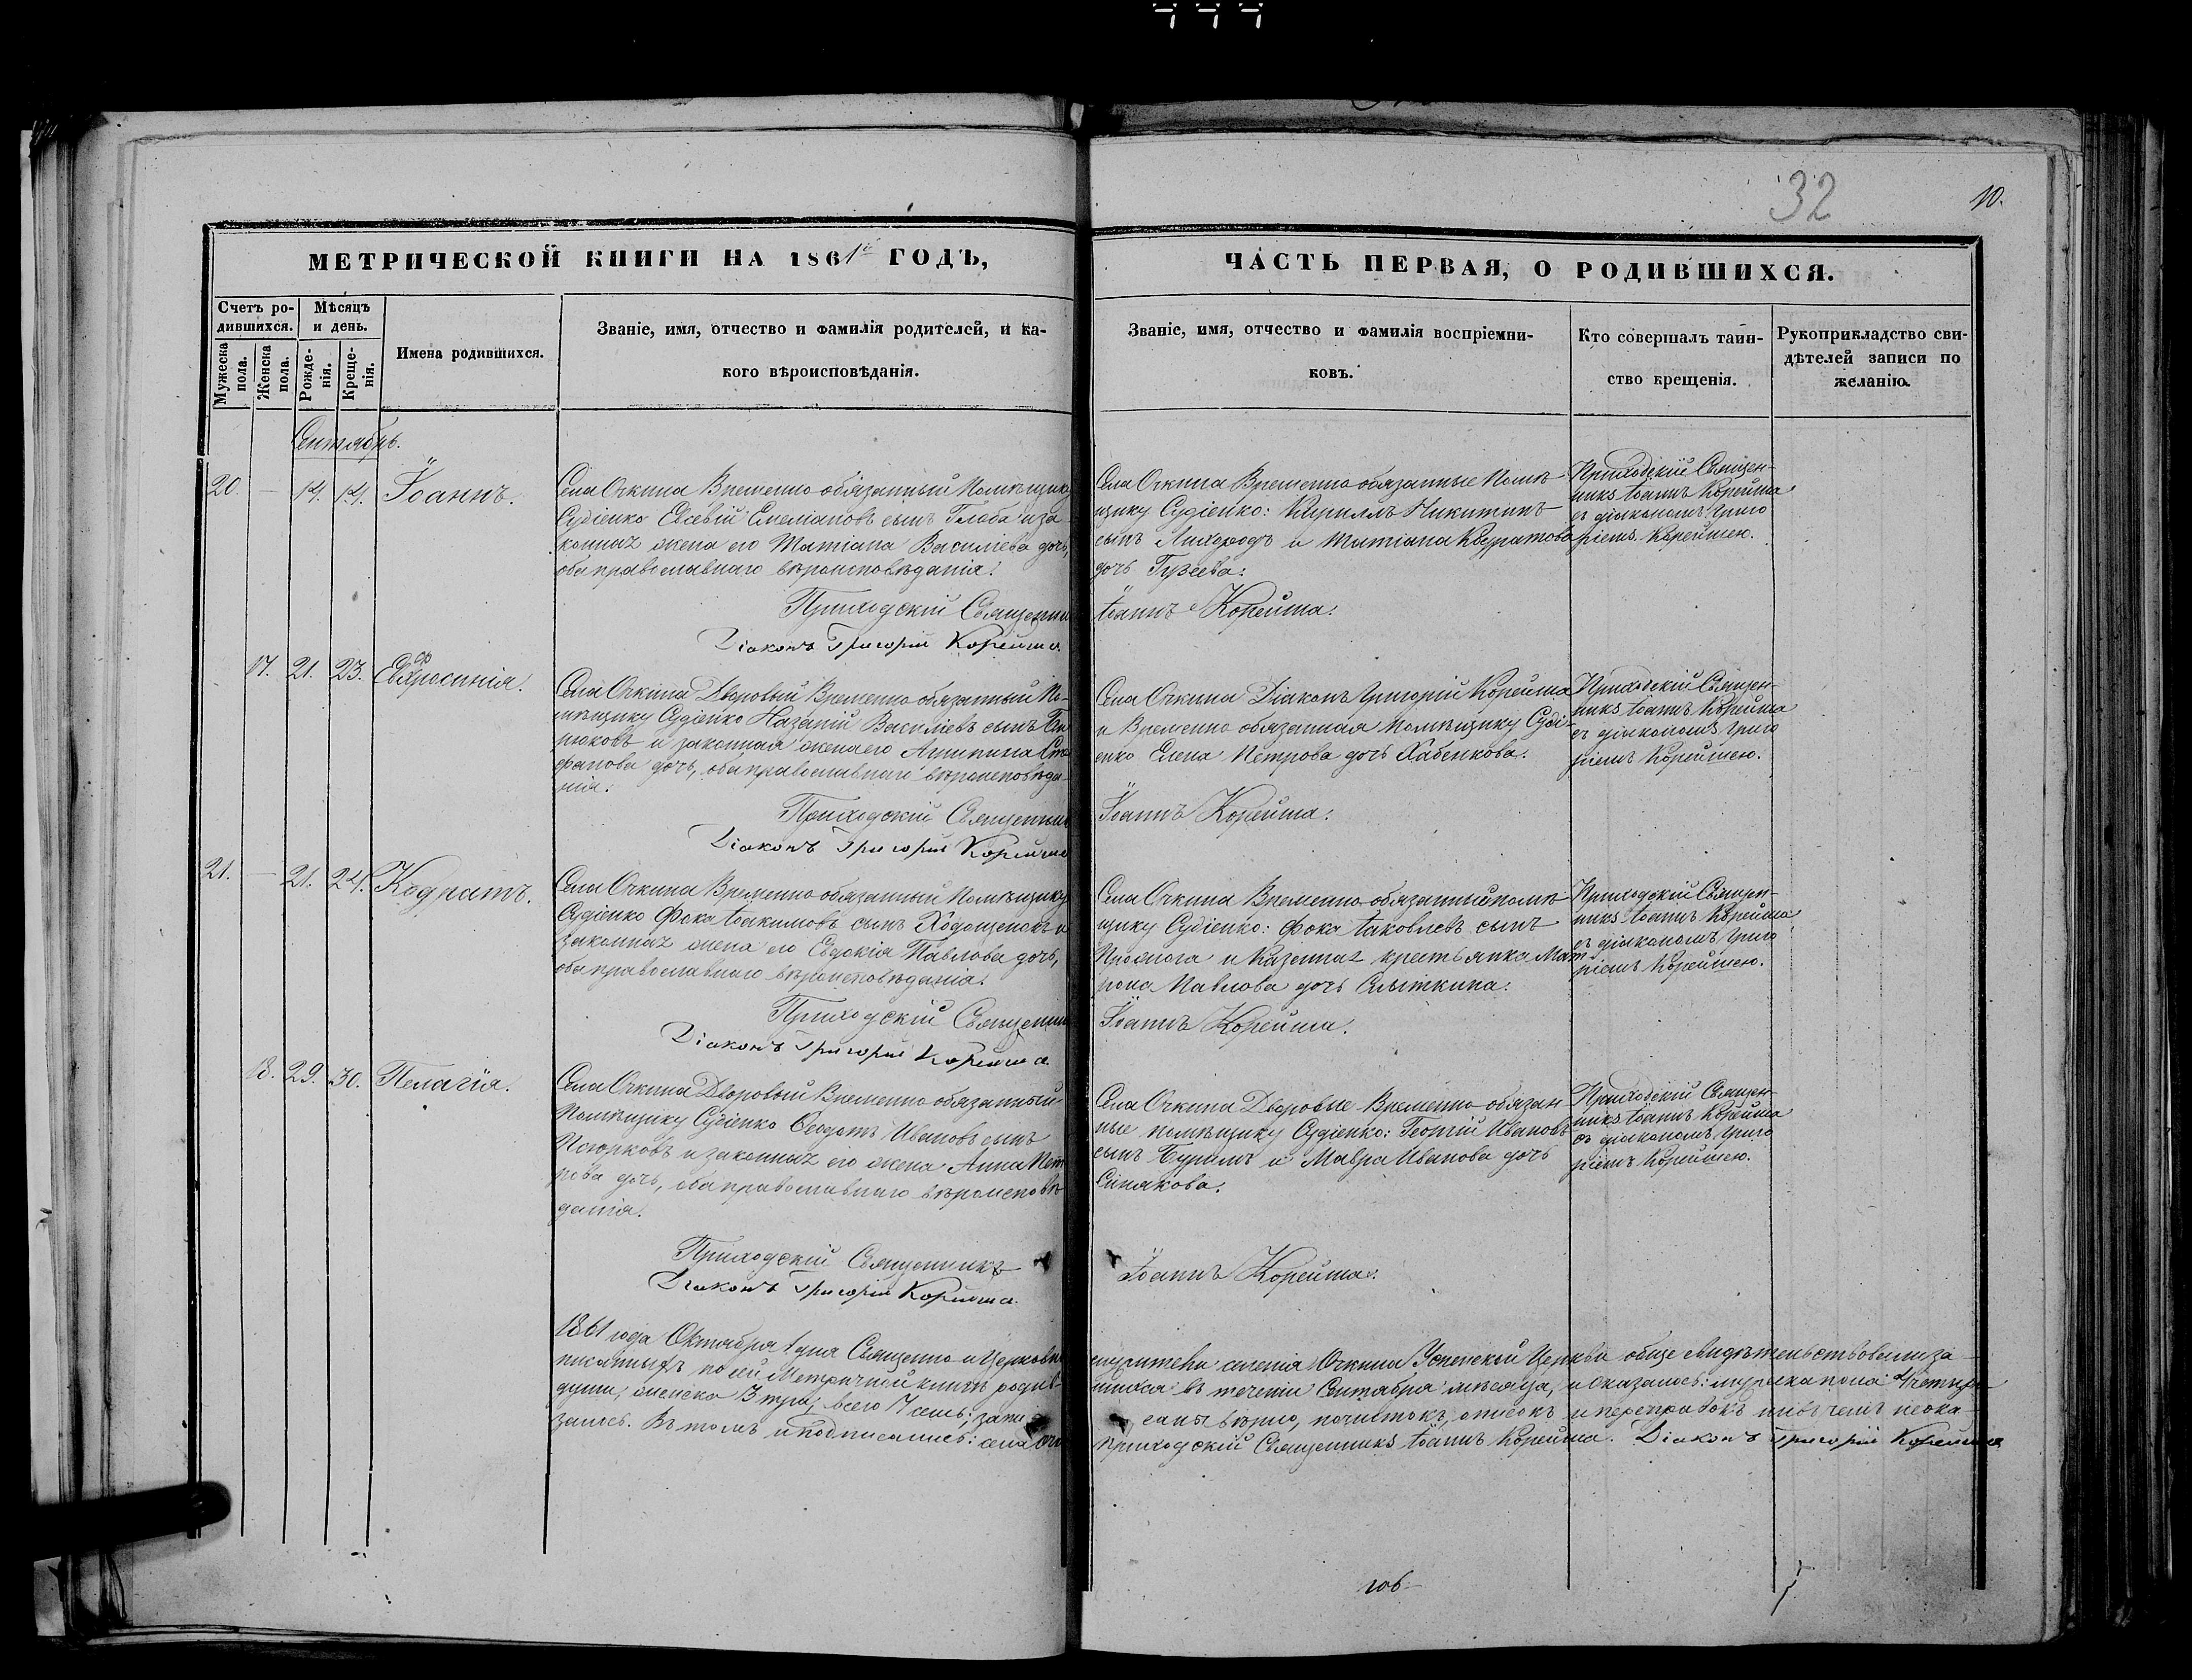 32
10.
МЕТРИЧЕСКОЙ КНИГИ НА 1861й ГОДЪ,
Счетъ ро-
дившихся.
Мѣсяцъ
и день.
Мужеска
пола.
Женска
пола.
Рожде-
нія.
Креще-
нія.
Имена родившихся.
Званіе, имя, отчество и фамилія родителей, и ка-
кого вѣроисповѣданія.
ЧАСТЬ ПЕРВАЯ, О РОДИВШИХСЯ.
Званіе, имя, отчество и фамилія воспріемни-
ковъ.
Кто совершалъ таин-
ство крещенія.
Рукоприкладство сви-
дѣтелей записи по
желанію.
Сентябрь.
20. — 14. 14. Іоаннъ.
Села Очкина Временно обязанный Помѣщику
Судіенко Евсевій Емеліановъ сынъ Глоба и за
конная жена его Татіана Василіева дочь,
оба православнаго вѣроисповѣданія.
Приходскій Священникъ
Діаконъ Григорій Корейша.
Села Очкина Временно обязанные Помѣ-
щику Судіенко: Кириллъ Никитинъ
сынъ Лихородъ и Татіана
дочь Гузеева.
Іоаннъ Корейша.
Приходскій Священ-
никъ Іоаннъ Корейша
съ діакономъ Григо
ріемъ Корейшею.
17. 21. 23. Евфросинія.
Села Очкина Дворовый Временно обязанный По-
мѣщику Судіенко Назарій Василіевъ сынъ
рюковъ и законная жена его Агрипина Сте
фанова дочь, оба православнаго вѣроисповѣда-
нія.
Приходскій Священникъ
Діаконъ Григорій Корейша
Села Очкина Діаконъ Григорій Корейша
и Временно обязанная Помѣщику Суді-
енко Елена Петрова дочь Хабенкова.
Іоаннъ Корейша.
Приходскій Священ-
никъ Іоаннъ Корейша
съ діакономъ Григо
ріемъ Корейшею.
21. — 21. 24. Кодратъ.
Села Очкина Временно обязанный Помѣщику
Судіенко Фока Іоакимовъ сынъ и
законная жена его Евдокія Павлова дочь,
оба православнаго вѣроисповѣданія.
Приходскій Священникъ
Діаконъ Григорій Корейша.
Села Очкина Временно обязанный помѣ-
щику Судіенко: Фока Іаковлевъ сынъ
и Казенная крестьянка Мат
рона Павлова дочь
Іоаннъ Корейша.
Приходскій Священ-
никъ Іоаннъ Корейша
съ діакономъ Григо
ріемъ Корейшею.
18. 29. 30. Пелагія.
Села Очкина Дворовый Временно обязанный
Помѣщику Судіенко Ѳеодотъ Ивановъ сынъ
Псюрковъ и законная его жена Анна Пет
рова дочь, оба православнаго вѣроисповѣ
данія.
Приходскій Священникъ
Діаконъ Григорій Корейша.
Села Очкина Дворовые Временно обязан-
ные помѣщику Судіенко: Георгій Ивановъ
сынъ Бурымъ и Мавра Иванова дочь
Синякова.
Іоаннъ Корейша.
Приходскій Священ-
никъ Іоаннъ Корейша
съ діакономъ Григо
ріемъ Корейшею.
1861 года Октября 1 дня Священно и Церковно
служители села Очкина Успенской Церкви обще свидѣтельствовали за-
писанныхъ по сей Метричной книгѣ родив-
шихся въ теченіи Сентября мѣсяца, и оказалось: мужеска пола 4 четыре
души, женска 3 три, всего 7 семь; запи
саны вѣрно, почистокъ, описокъ и переправокъ ни въ чемъ не ока-
залось. Въ томъ и подписались: села Очкина
Приходскій Священникъ Іоаннъ Корейша. Діаконъ Григорій Корейша